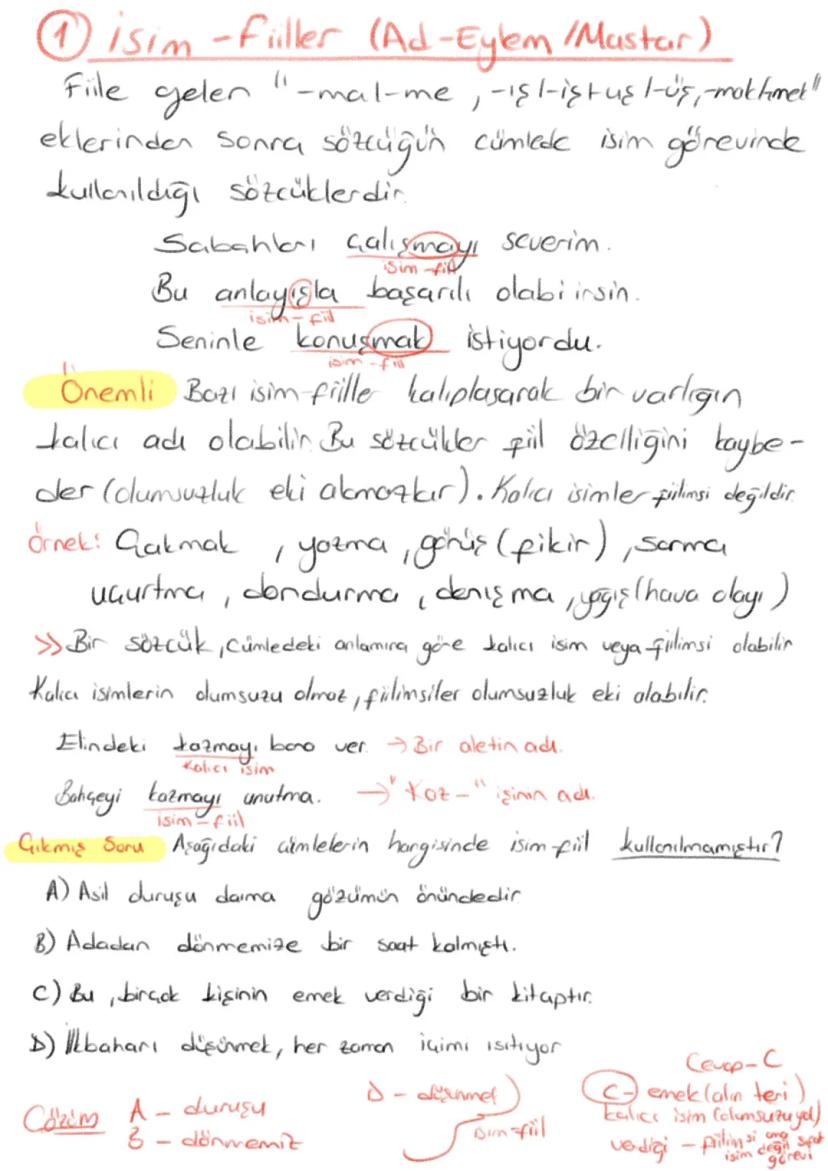 ① isim-fiiller (Ad-Eylem/Mastar)
Fiile gelen "-ma/-me, -ış/-iş/-uş/-üş, -mak/-mek"
eklerinden sonra sözcüğün cümlede isim görevinde
kullanıldığı sözcüklerdir
Sabahları çalışmayı severim.
isim-fiil
Bu anlayışla başarılı olabilirsin.
isim-fiil
Seninle konuşmak istiyordu.
isim-fiil
Önemli Bazı isim-fiiller kalıplaşarak bir varlığın
kalıcı adı olabilir. Bu sözcükler fiil özelliğini kaybe-
der (olumsuzluk eki almazlar). Kalıcı isimler fiilimsi değildir.
Örnek: Çakmak, yazma, görüş (fikir), sarma
uçurtma, dondurma, danışma, yağış (hava olayı)
>> Bir sözcük, cümledeki anlamına göre kalıcı isim veya fiilimsi olabilir
Kalıcı isimlerin olumsuzu olmaz, fiilimsiler olumsuzluk eki alabilir.
Elindeki kazmayı bana ver. → Bir aletin adı.
Kalıcı isim
Bahçeyi kazmayı unutma. → "Kaz-" işinin adı.
isim-fiil
Çıkmış Soru Aşağıdaki cümlelerin hangisinde isim-fiil kullanılmamıştır?
A) Asil duruşu daima gözümün önündedir
B) Adadan dönmemize bir saat kalmıştı.
C) Bu, birçok kişinin emek verdiği bir kitaptır.
D) İlkbaharı düşünmek, her zaman içimi ısıtıyor
Cevap-C
Çözüm A - duruşu
B - dönmemiz
D - düşünmek
isim-fiil
C- emek (alın teri)
kalıcı isim (olumsuzu yok)
verdiği - fiilimsi ama
isim değil sıfat
görevi